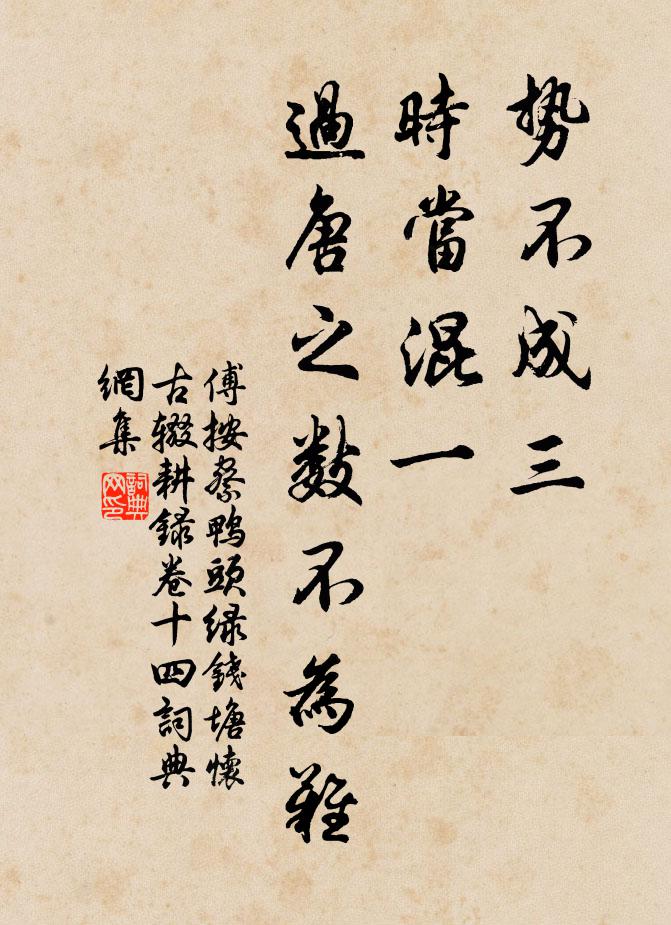 勢不成三
時當混一
過唐之數不為難
傅按察鴨頭綠錢塘懷
古輟耕錄卷十四詞典
網集
詞典
网印